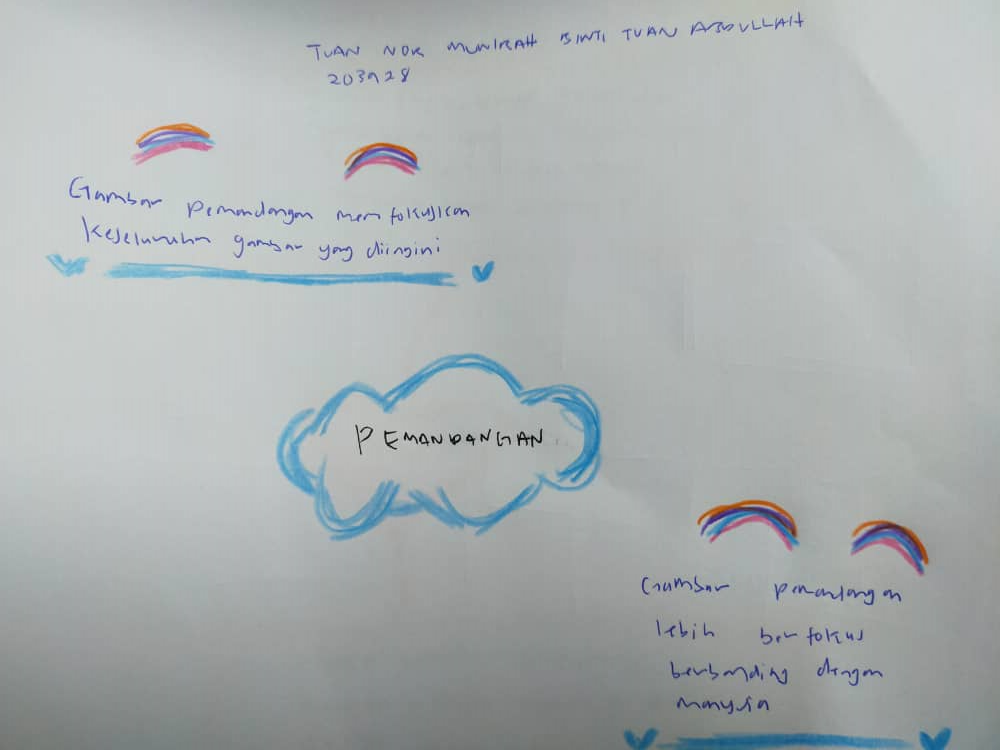 TUAN NOR MUNIRAH BINTI TUAN ABDULLAH
203928
Gambar pemandangan memfokuskan
keseluruhan gambar yang diingini
PEMANDANGAN
Gambar pemandangan
lebih berfokus
berbanding dengan
manusia